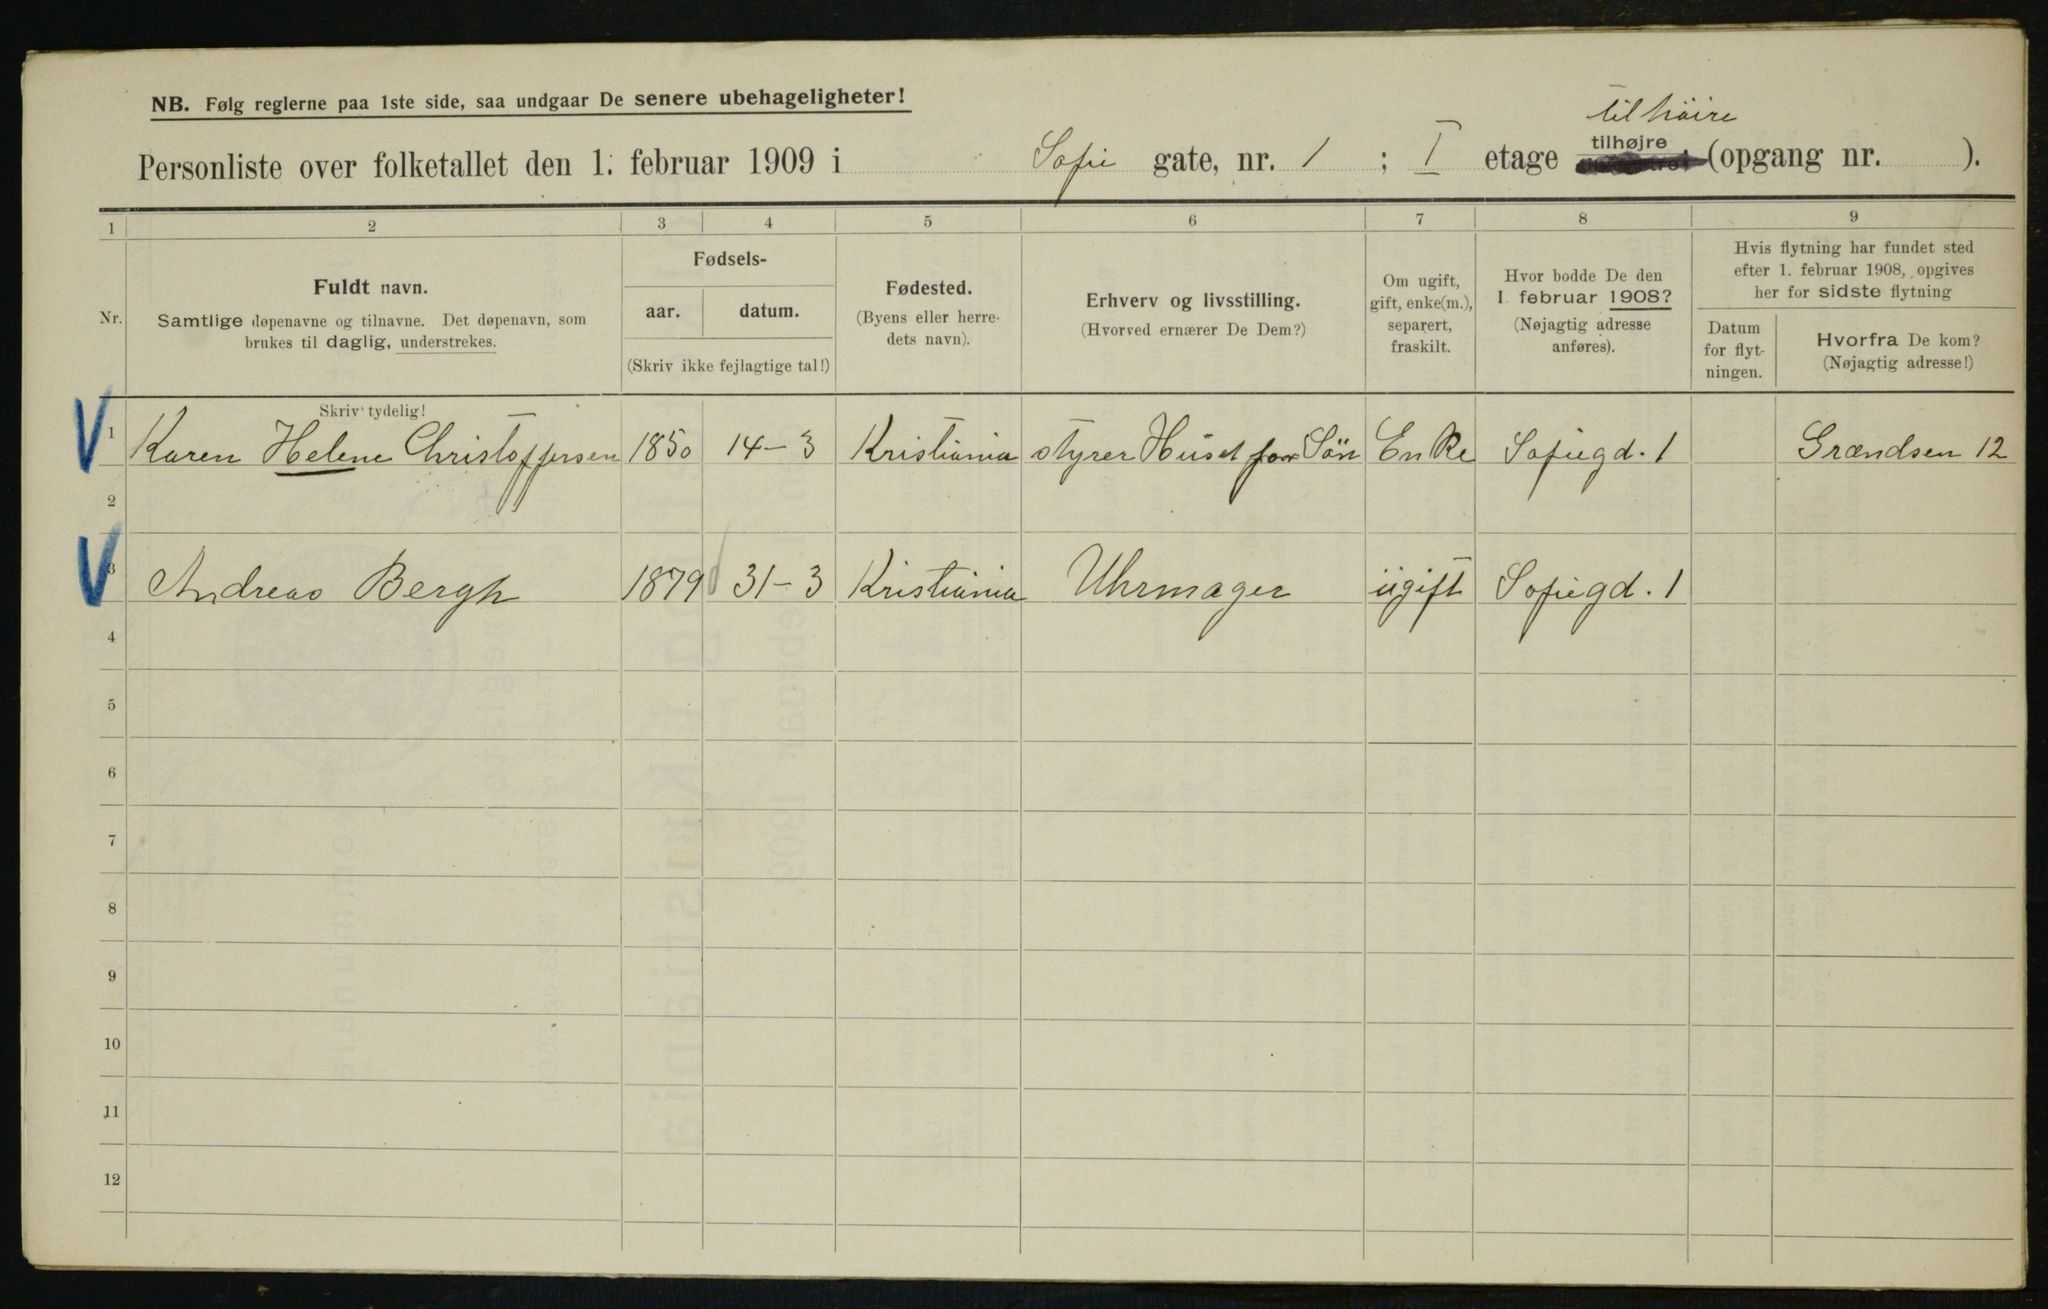 NB. Følg reglerne paa 1ste side, saa undgaar De senere ubehageligheter!
til höire
Personliste over folketallet den 1. februar 1909 i Sofie gate, nr. 1 ; I etage tilhøjre (opgang nr. ).
1 2 3 4 5 6 7 8 9
Nr.
Fuldt navn.
Samtlige døpenavne og tilnavne. Det døpenavn, som
brukes til daglig, understrekes.
Skriv tydelig!
Fødsels-
aar. datum.
(Skriv ikke fejlagtige tal!)
Fødested.
(Byens eller herre-
dets navn).
Erhverv og livsstilling.
(Hvorved ernærer De Dem?)
Om ugift,
gift, enke(m.),
separert,
fraskilt.
Hvor bodde De den
1. februar 1908?
(Nøjagtig adresse
anføres).
Hvis flytning har fundet sted
efter 1. februar 1908, opgives
her for sidste flytning
Datum
for flyt-
ningen.
Hvorfra De kom?
(Nøjagtig adresse!)
1 Karen Helene Christoffersen 1850 14-3 Kristiania styrer Huset for Sön Enke Sofiegd. 1 Grændsen 12
2
3 Andreas Bergh 1879 31-3 Kristiania Uhrmager ugift Sofiegd. 1
4
5
6
7
8
9
10
11
12